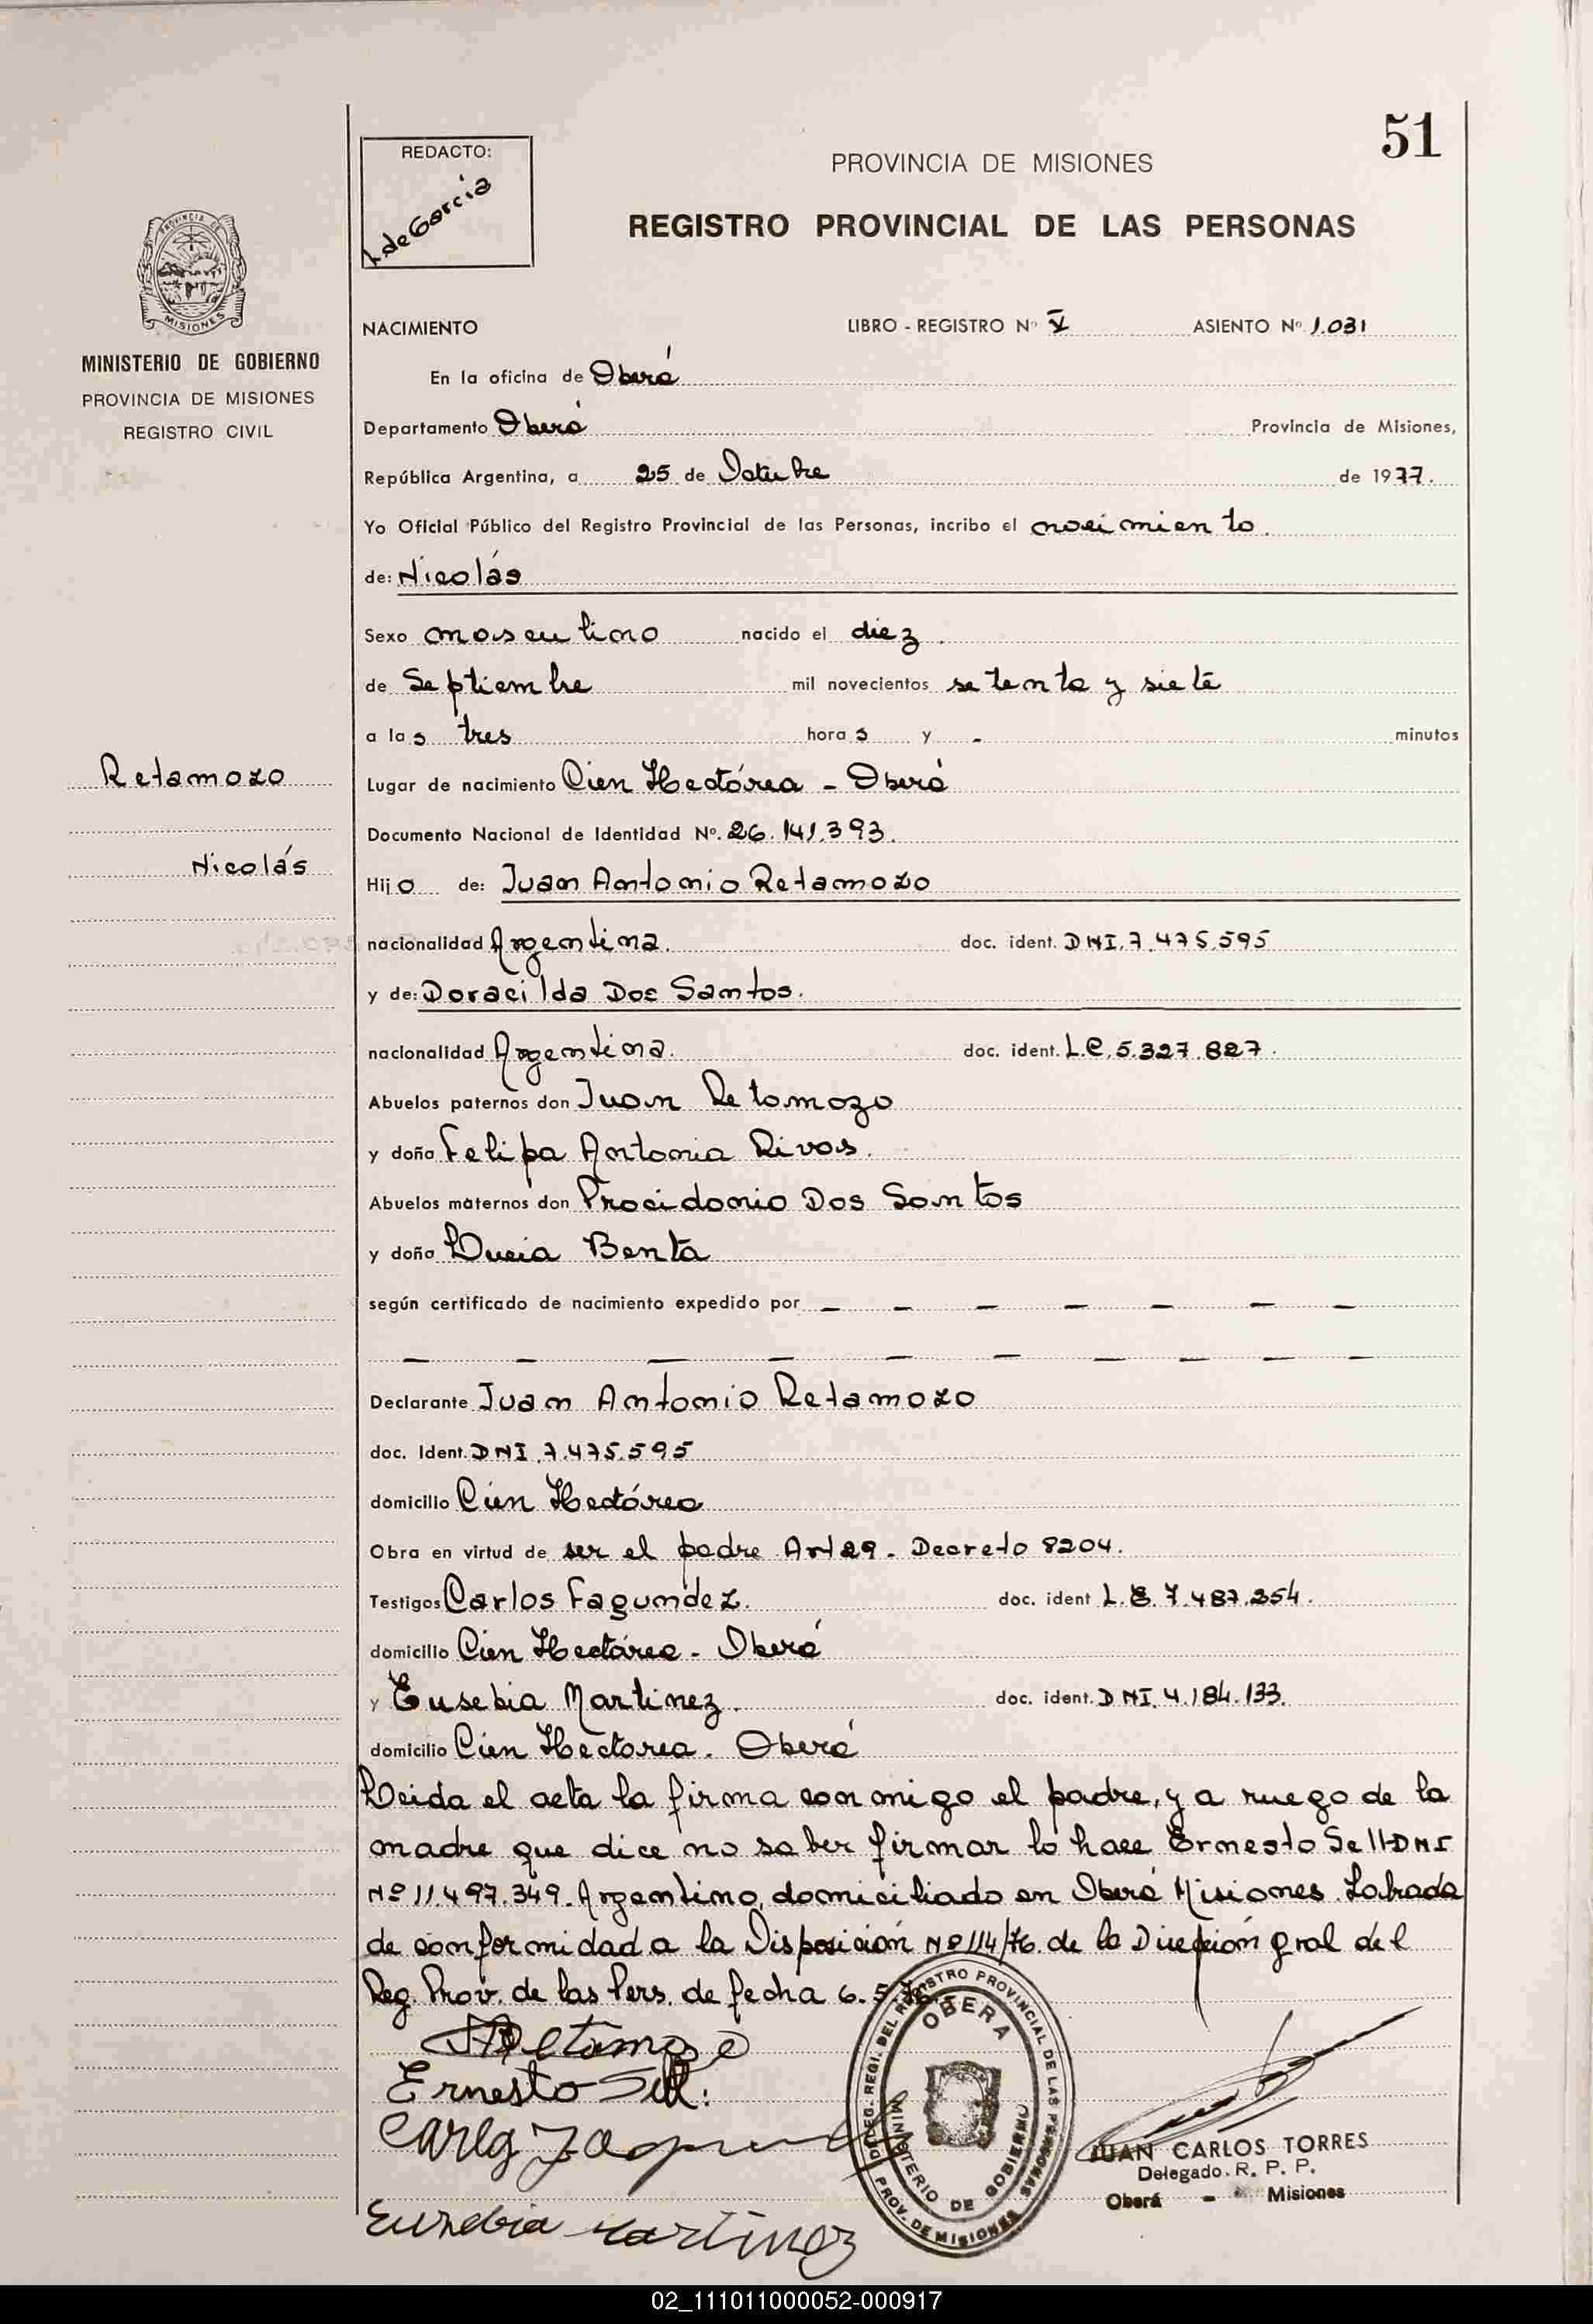 51
REDACTO:
de Garcia
PROVINCIA DE MISIONES
REGISTRO PROVINCIAL DE LAS PERSONAS
PROVINCIA DE
MISIONES
MINISTERIO DE GOBIERNO
PROVINCIA DE MISIONES
REGISTRO CIVIL
NACIMIENTO LIBRO - REGISTRO Nº V ASIENTO Nº 1.031
En la oficina de Oberá
Departamento Oberá Provincia de Misiones,
República Argentina, a 25 de Octubre de 1977.
Yo Oficial Público del Registro Provincial de las Personas, incribo el nacimiento.
de: Nicolás
Sexo masculino nacido el diez.
de Septiembre mil novecientos setenta y siete
a las tres horas y - minutos
Retamozo
Lugar de nacimiento Cien Hectárea - Oberá
Documento Nacional de Identidad Nº. 26.141.393.
Nicolás
Hijo de: Juan Antonio Retamozo
nacionalidad Argentina. doc. ident. DNI. 7.475.595
y de: Doracilda Dos Santos.
nacionalidad Argentina. doc. ident. L.C. 5.327.827.
Abuelos paternos don Juan Retamozo
y doña Felipa Antonia Rivas.
Abuelos maternos don Procidonio Dos Santos
y doña Lucia Benta
según certificado de nacimiento expedido por — — — — — — —
— — — — — — — — —
Declarante Juan Antonio Retamozo
doc. Ident. DNI. 7.475.595
domicilio Cien Hectárea
Obra en virtud de ser el padre Art 29. Decreto 8204.
Testigos Carlos Fagundez. doc. ident L.E. 7.487.254.
domicilio Cien Hectárea - Oberá
y Eusebia Martinez. doc. ident. DNI. 4.184.133.
domicilio Cien Hectarea. Oberá
Leida el acta la firma conmigo el padre, y a ruego de la
madre que dice no saber firmar lo hace Ernesto Sell DNI
Nº 11.497.349. Argentino, domiciliado en Oberá Misiones. Labrada
de conformidad a la Disposición Nº 114/76. de la Dirección gral del
Reg. Prov. de las Pers. de fecha 6.5.76.
Retamozo
Ernesto Sell.
Carlos Fagundez
Eusebia Martinez
DELEG. REGI. DEL REGISTRO PROVINCIAL DE LAS PERSONAS
OBERA
MINISTERIO DE GOBIERNO
PROV. DE MISIONES
JUAN CARLOS TORRES
Delegado. R. P. P.
Oberá - Misiones
02_111011000052-000917